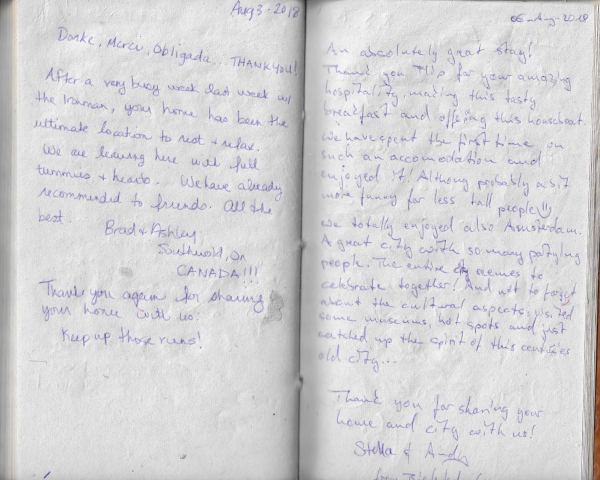 Aug 3 - 2018
Danke, Merci, Obligada... THANKYOU!
After a very busy week last week w/
the Ironman, your home has been the
ultimate location to rest & relax.
We are leaving here with full
tummies & hearts. We have already
recommended to friends. All the
best.
Brad & Ashley
Southwold, On
CANADA!!!
Thank you again for sharing
your home with us.
Keep up those runs!
05-Aug-2018
An absolutely great stay!
Thank you for your amazing
hospitality, making this tasty
breakfast and offering this houseboat.
We have spent the first time on
such an accomodation and
enjoyed it! Although probably a bit
more funny for less tall people!
We totally enjoyed also Amsterdam.
A great city with so many partying
people. The entire city seemes to
celebrate together! And not to forget
about the cultural aspects: visited
some museums, hot spots and just
catched up the spirit of this centuries
old city...
Thank you for sharing your
home and city with us!
Stella & Andy
from